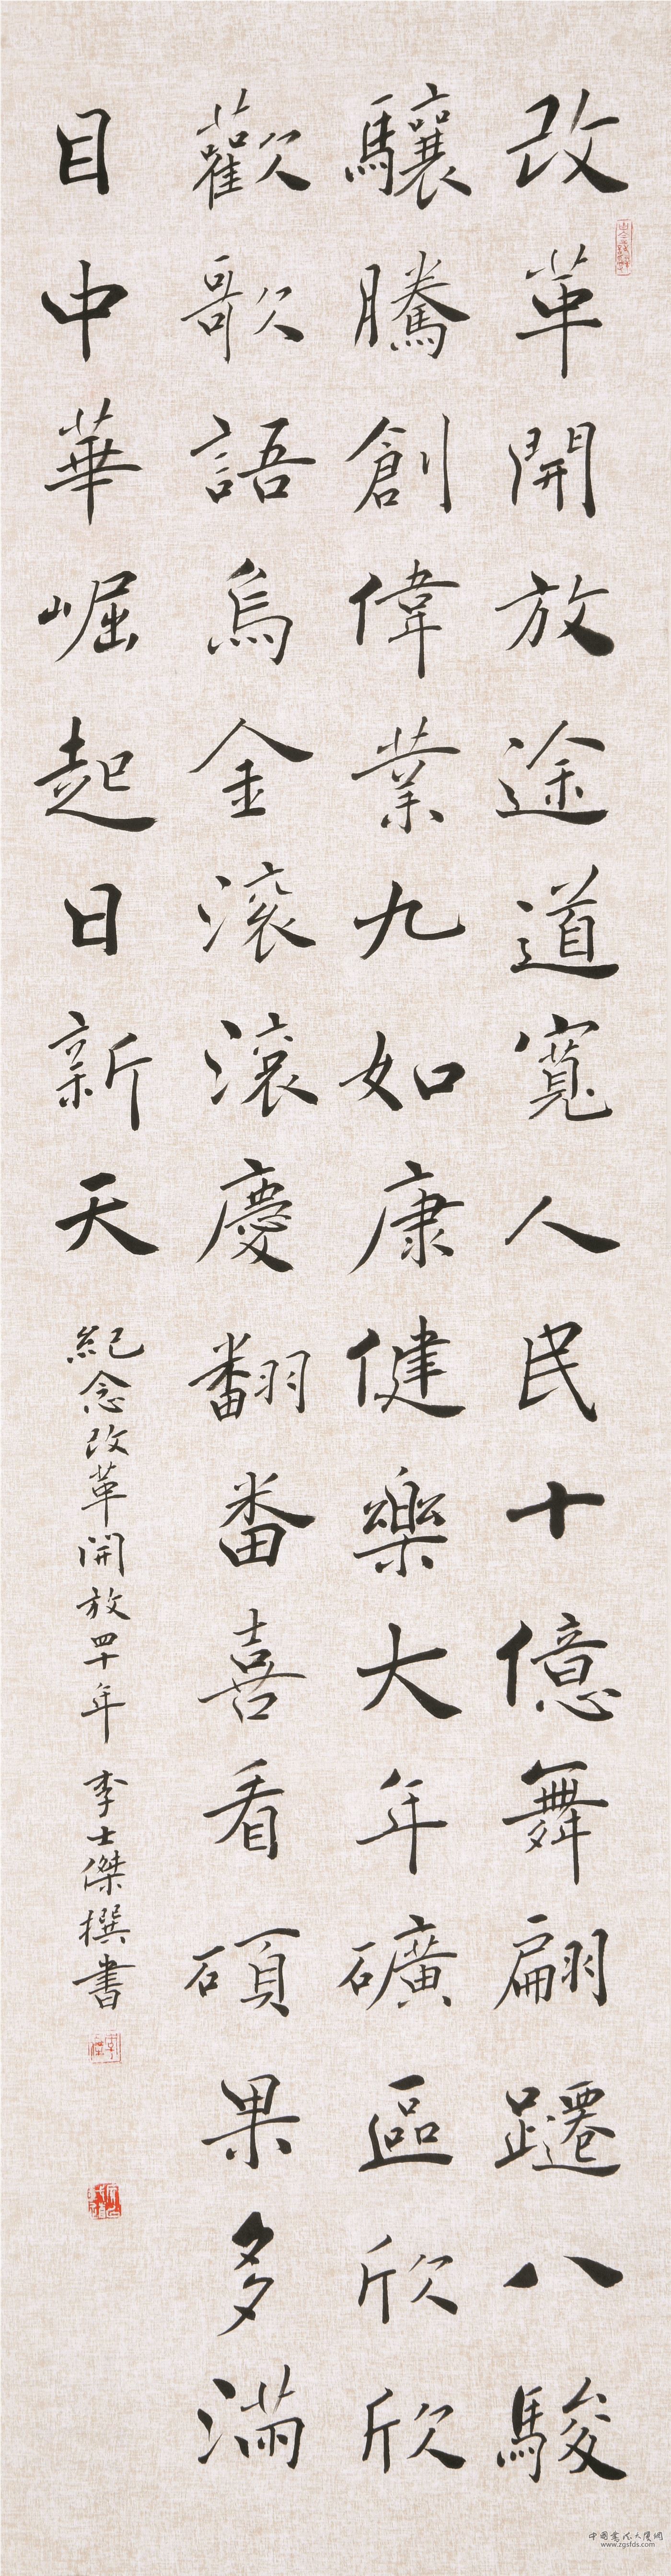 改革開放途道寬人民十億舞翩躚八駿
驤騰創偉業九如康健樂大年礦區欣欣
歡歌語烏金滾滾慶翻番喜看碩果多滿
目中華崛起日新天
紀念改革開放四十年 李士傑撰書
www.zgsfds.com